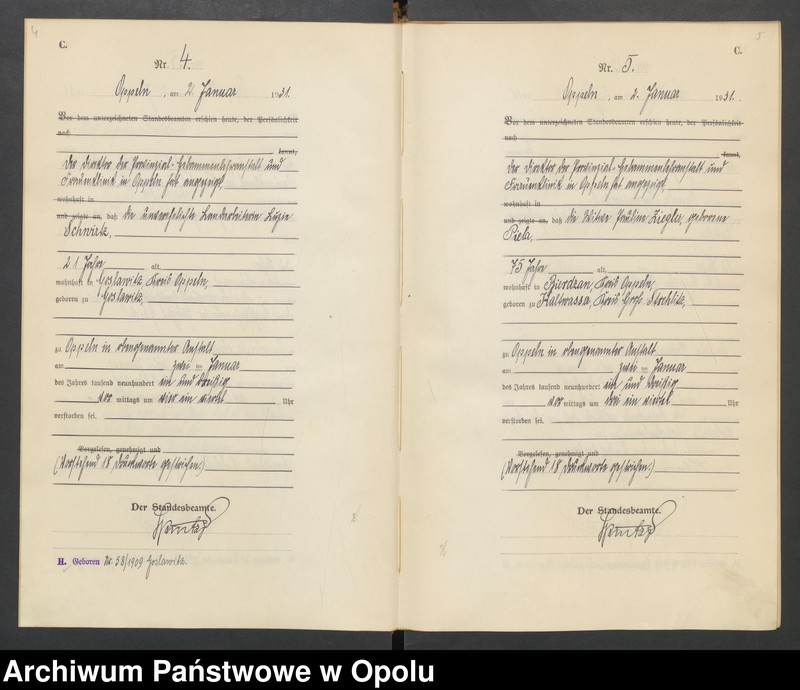 4
C.
Nr. 4.
Oppeln, am 2. Januar 1931.
Vor dem unterzeichneten Standesbeamten erschien heute, der Persönlichkeit
nach
kannt,
Der Direktor der Provinzial-Hebammenlehranstalt und
Frauenklinik in Oppeln hat angezeigt,
wohnhaft in
und zeigte an, daß die unverehelichte Landarbeiterin Luzie
Schwirtz,
21 Jahre alt,
wohnhaft in Goslawitz, Kreis Oppeln,
geboren zu Goslawitz,
zu Oppeln in obengenannter Anstalt
am zwei ten Januar
des Jahres tausend neunhundert ein und dreißig
vor mittags um vier ein viertel Uhr
verstorben sei.
Vorgelesen, genehmigt und
(Vorstehend 18 Druckworte gestrichen.)
Der Standesbeamte.
H. Geboren Nr. 58/1909 Goslawitz.
5
C.
Nr. 5.
Oppeln, am 2. Januar 1931.
Vor dem unterzeichneten Standesbeamten erschien heute, der Persönlichkeit
nach
kannt,
Der Direktor der Provinzial-Hebammenlehranstalt und
Frauenklinik in Oppeln hat angezeigt,
wohnhaft in
und zeigte an, daß die Witwe Pauline Ziegler, geborene
Piela,
75 Jahre alt,
wohnhaft in Bierdzan, Kreis Oppeln,
geboren zu Kaltwassa, Kreis Groß Strehlitz,
zu Oppeln in obengenannter Anstalt
am zwei ten Januar
des Jahres tausend neunhundert ein und dreißig
vor mittags um drei ein viertel Uhr
verstorben sei.
Vorgelesen, genehmigt und
(Vorstehend 18 Druckworte gestrichen.)
Der Standesbeamte.
Archiwum Państwowe w Opolu